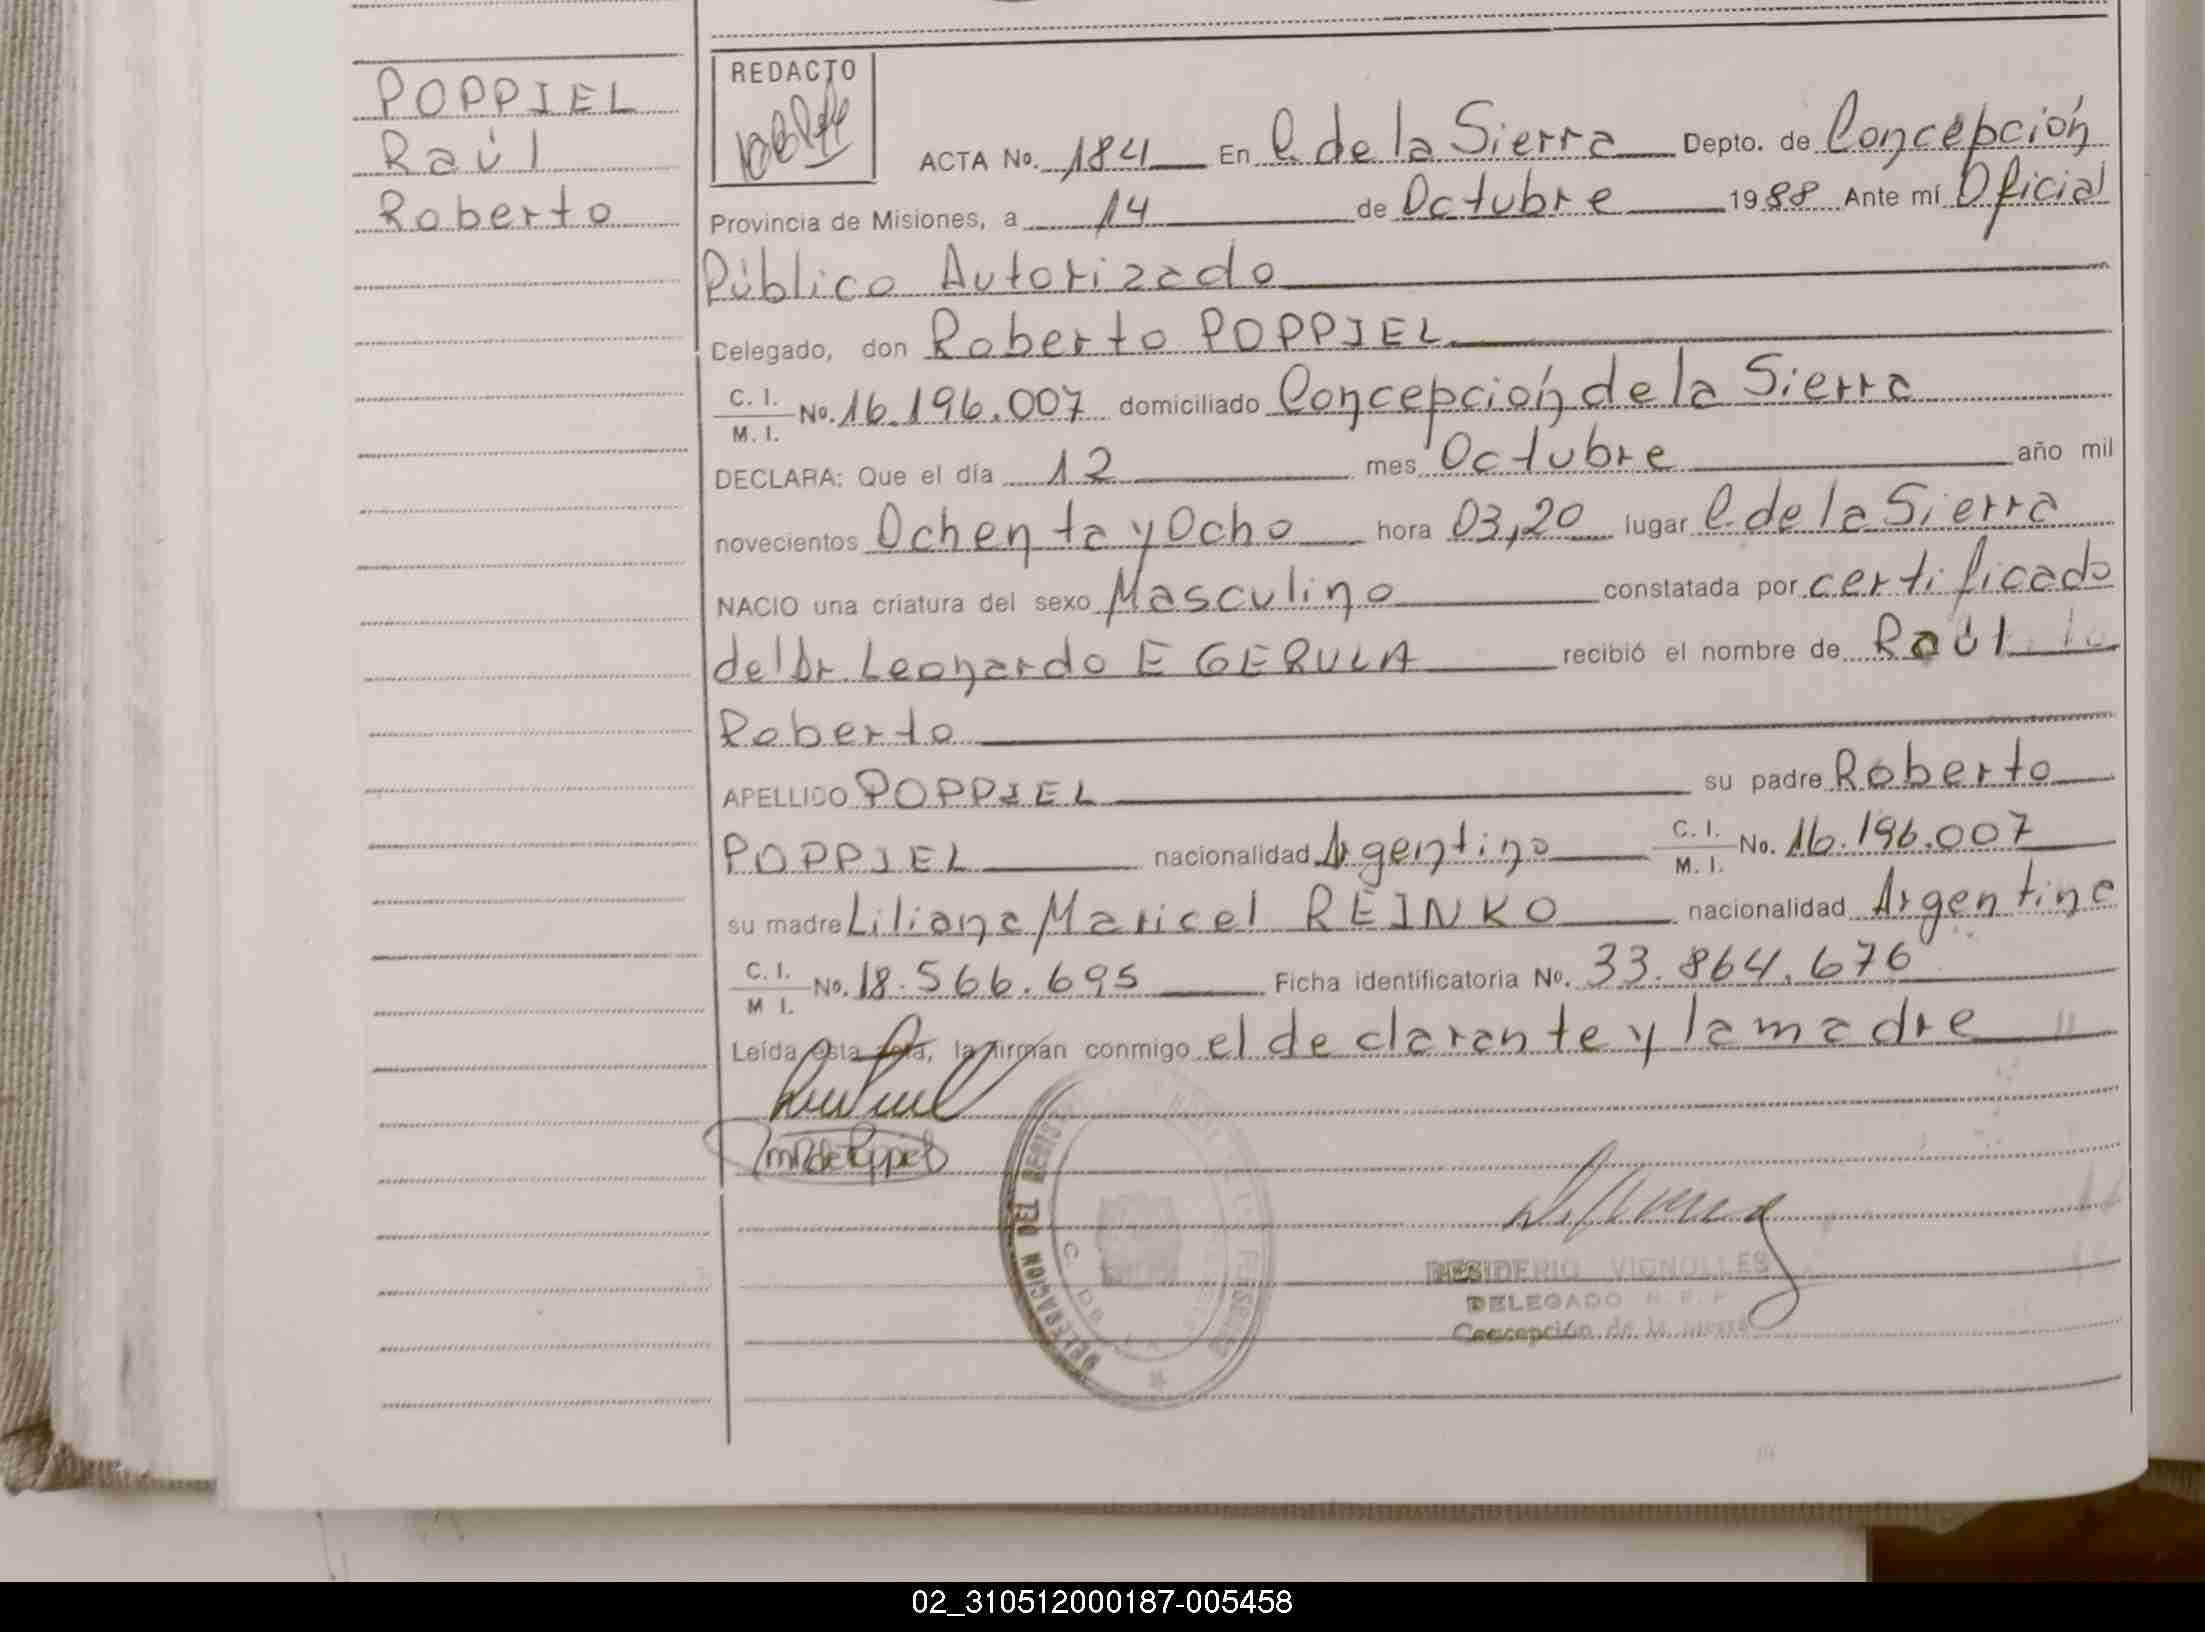 POPPIEL
Raúl
Roberto
REDACTO
ACTA No. 184 En C. de la Sierra Depto. de Concepción
Provincia de Misiones, a 14 de Octubre 1988 Ante mí Oficial
Público Autorizado
Delegado, don Roberto POPPIEL
C. I.
M. I. No. 16.196.007 domiciliado Concepción de la Sierra
DECLARA: Que el día 12 mes Octubre año mil
novecientos Ochenta y Ocho hora 03,20 lugar C. de la Sierra
NACIO una criatura del sexo Masculino constatada por certificado
del Dr. Leonardo E GERULA recibió el nombre de Raúl
Roberto
APELLIDO POPPIEL su padre Roberto
POPPIEL nacionalidad Argentino C. I. M. I. No. 16.196.007
su madre Liliana Maricel REINKO nacionalidad Argentina
C. I.
M I. No. 18.566.695 Ficha identificatoria No. 33.864.676
Leída esta acta, la firman conmigo el declarante y la madre
DELEGACION DEL REGISTRO
DESIDERIO VIGNOLLES
DELEGADO R. P. P
Concepción de la Sierra
02_310512000187-005458